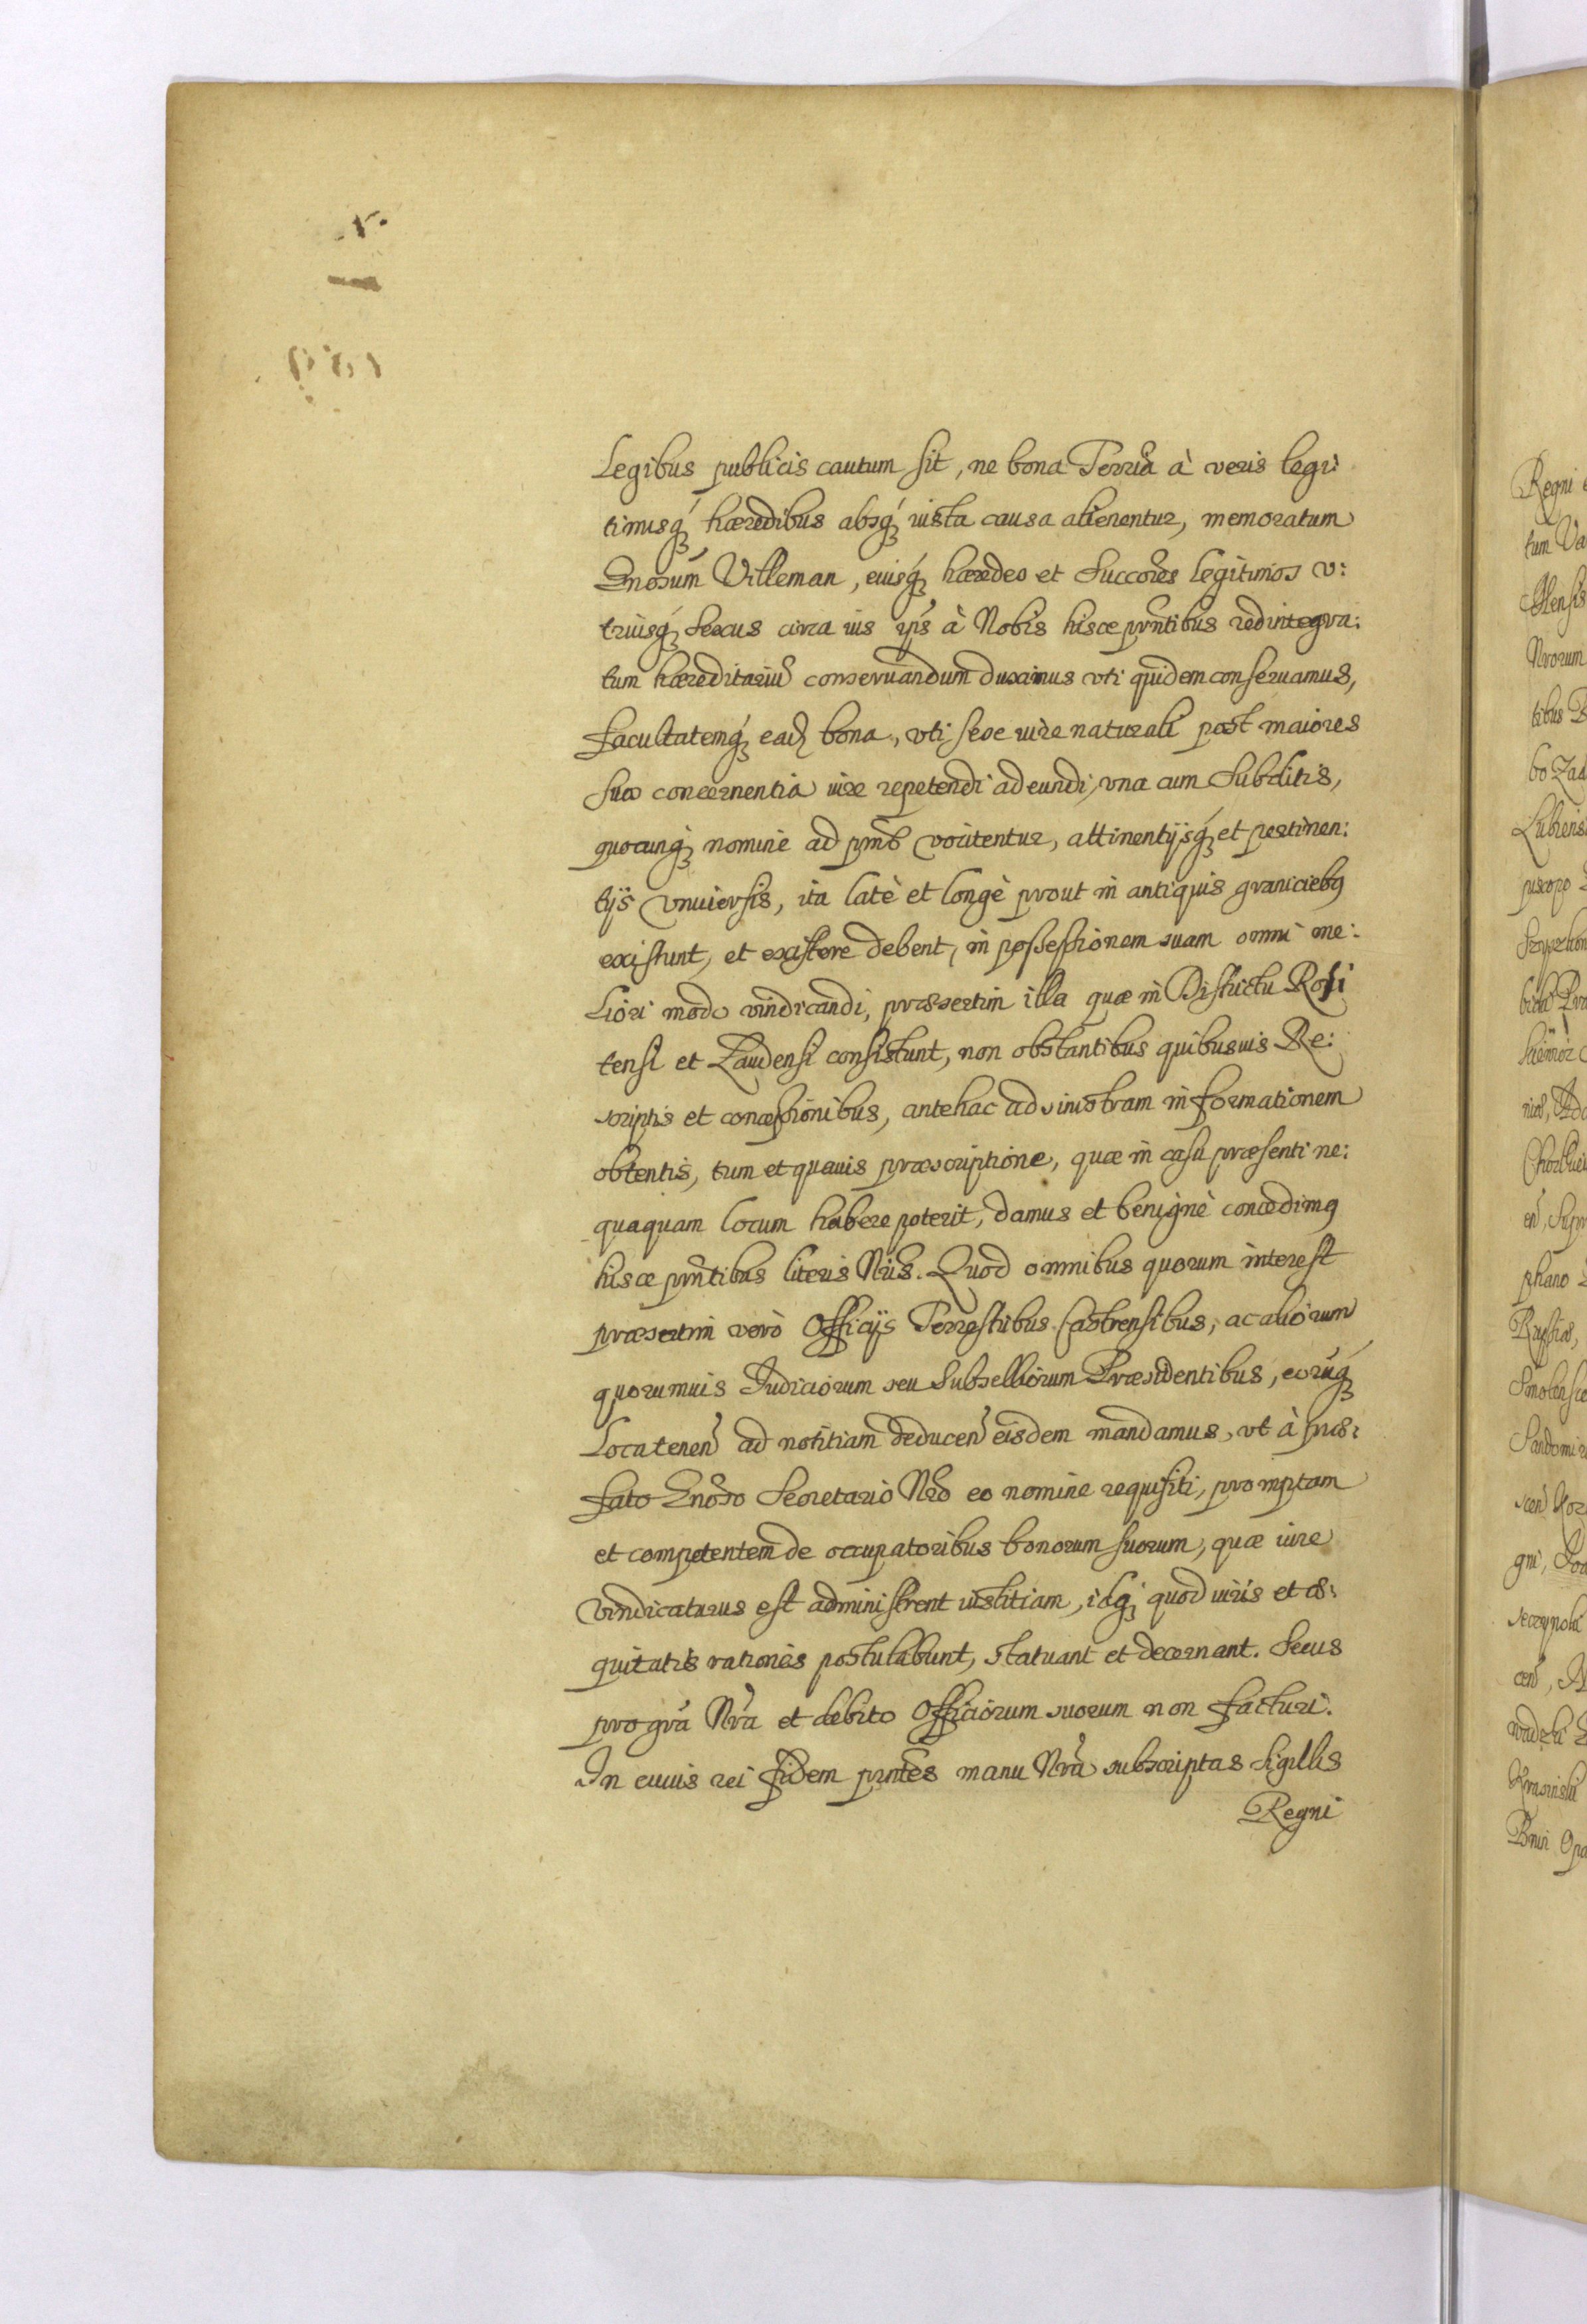 Legibus publicis cautum sit, ne bona Terria à veris legi:
timisq́ꝫ hæredibus absq́ꝫ iusta causa alienentur, memoratum
Gnosum Villeman, euisq́ꝫ hæredes et Succores legitimos v:
triusq́ꝫ sexus circa ius ips à Nobis hisce pntibus redintegra:
tum hæreditariu conseruandum duximus vti quidem conseruamus,
facultatemq́ꝫ ead bona, vti sese iure naturali post maiores
suos concernentia iure repetendi adeundi, vna cum Subditis,
quocunq́ꝫ nomine ad pns vocitentur, attinentijsq́ꝫ et pertinen:
tijs vniuersis, ita latè et longè prout in antiquis graniciebꝫ
existunt, et existere debent, in possessionem suam omni me:
liori modo vindicandi, præsertim illa quæ in Districtu Rosi
tensi et Laudensi consistunt, non obstantibus quibusuis Re:
scriptis et concessionibus, antehac ad sinistram informationem
obtentis, tum et quauis præscriptione, quæ in casu præsenti ne:
quaquam locum habere poterit, damus et benignè concedimꝫ
hisce pntibus literis Nris. Quod omnibus quorum interest
præsertim verò Officijs Terrestribus Castrensibus, ac aliorum
quorumuis Judiciorum seu Subselliorum Præsidentibus, eorúq́ꝫ
Locatenen ad notitiam deducen eisdem mandamus, vt à præ:
fato Gnoso Secretario Nro eo nomine requisiti, promptam
et competentem de occupatoribus bonorum suorum, quæ iure
vindicaturus est administrent iustitiam, idqꝫ quod iuris et æ:
quitatis rationes postulabunt, statuant et decernant. Secus
pro gra Nra et debito Officiorum suorum non facturi.
In cuius rei fidem pntes manu Nra subscriptas Sigillis
Regni